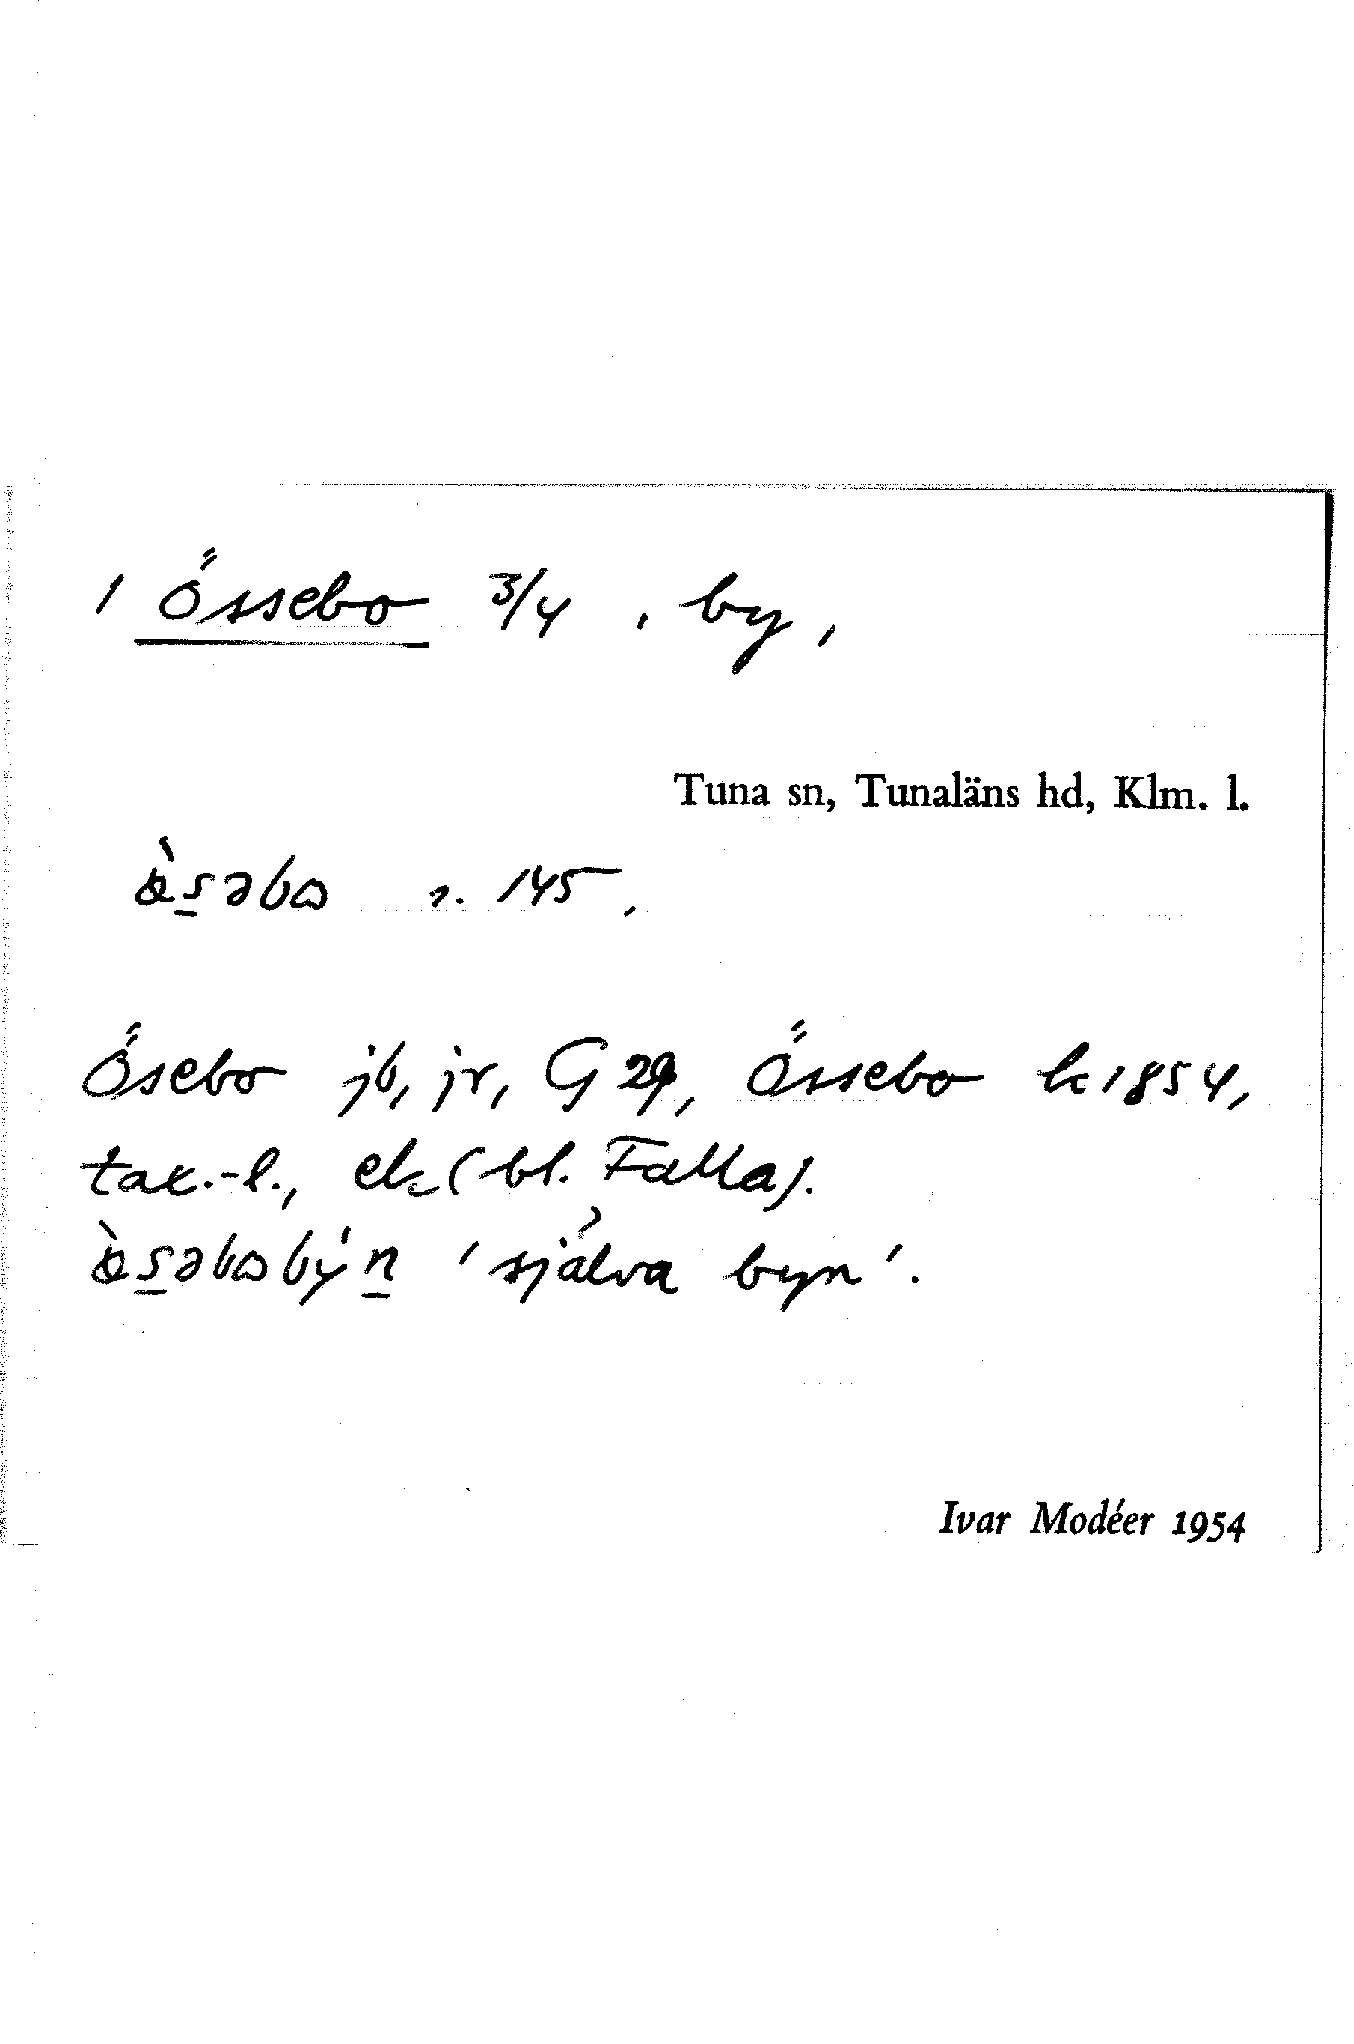 1 Össebo 3/4, by,
Tuna sn, Tunaläns hd, Klm. l.
s. 145,
Ösebo jb, jr, G 29, Össebo k 1854,
tax.-l., ek (bl. Falla).
'själva byn'.
Ivar Modéer 1954